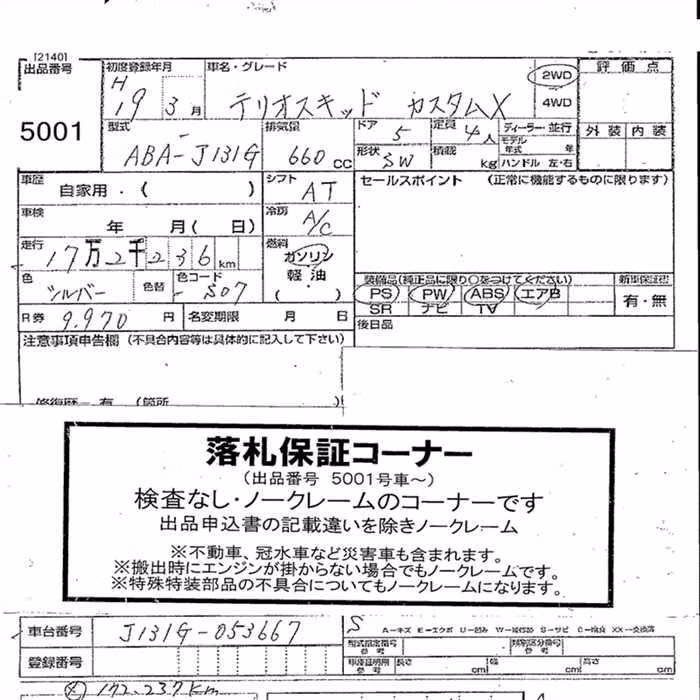 [2140]
出品番号
5001
初度登録年月
H 19 3 月
車名・グレード
テリオスキッド カスタムX
2WD
4WD
評価点
外装 内装
型式
ABA-J131G
排気量
660 CC
ドア
5
定員
4人
形状
SW
積載
kg
ディーラー・並行
モデル年式 年
ハンドル 左・右
車歴
自家用・( )
シフト
AT
セールスポイント (正常に機能するものに限ります)
車検
年 月( 日)
冷房
A/C
走行
17万2千236 km
燃料
ガソリン
軽油
( )
色
シルバー
色替
色コード
S07
装備品(純正品に限り○をつけてください)
PS PW ABS エアB
SR ナビ TV
新車保証書
有・無
R券
9.970 円
名変期限 月 日
後日品
注意事項申告欄 (不具合内容等は具体的に記入して下さい)
修復歴 有 (箇所 )
落札保証コーナー
(出品番号 5001号車～)
検査なし・ノークレームのコーナーです
出品申込書の記載違いを除きノークレーム
※不動車、冠水車など災害車も含まれます。
※搬出時にエンジンが掛からない場合でもノークレームです。
※特殊特装部品の不具合についてもノークレームになります。
車台番号
J131G-053667
S
A-キズ E-エクボ U-凹み S-サビ C-腐食
登録番号
型式指定番号
参考
類別区分番号
参考
車庫証明用
参考
長さ cm
幅 cm
高さ cm
172.237km